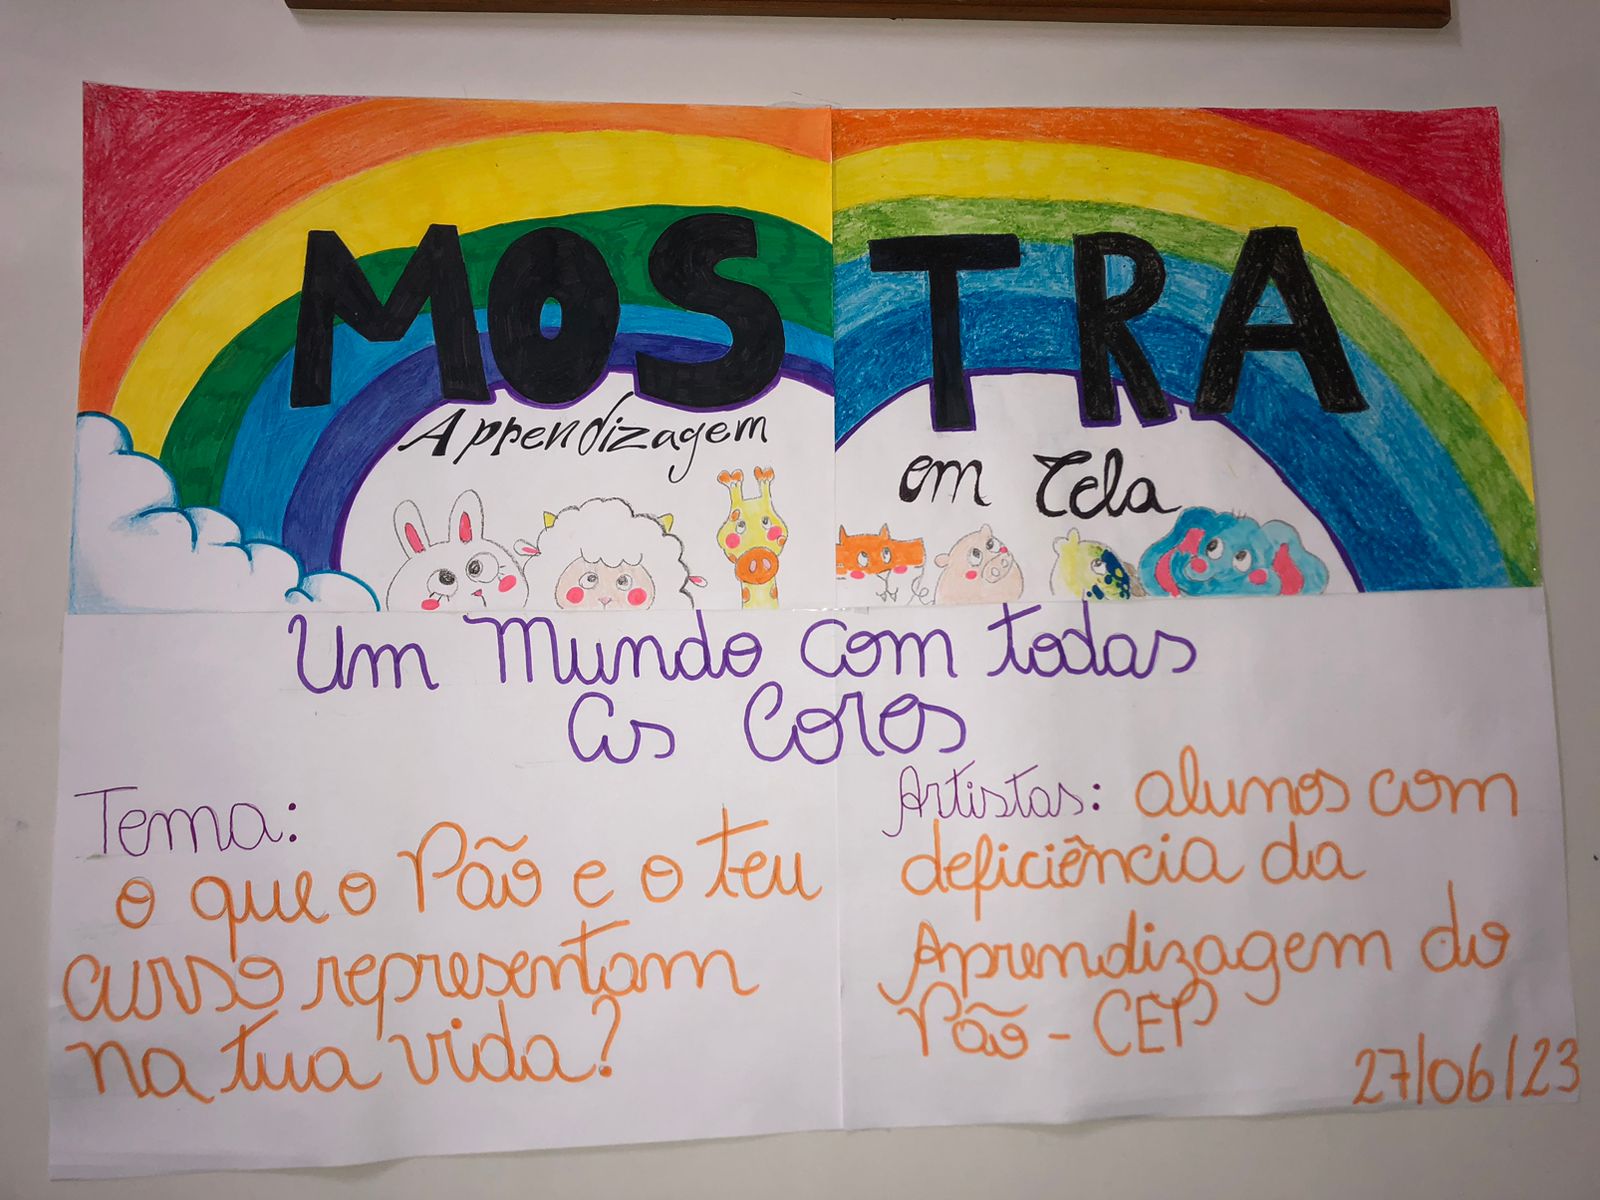 MOSTRA
Aprendizagem em Tela
Um Mundo com todas
as Cores
Tema:
o que o Pão e o teu
curso representam
na tua vida?
Artistas: alunos com
deficiência da
Aprendizagem do
Pão - CEP
27/06/23